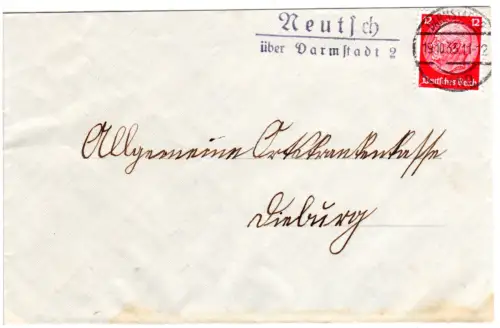 Neutsch
über Darmstadt 2
12 12
19.10.33.11-12
Deutsches Reich
Allgemeine Ortskrankenkasse
Dieburg